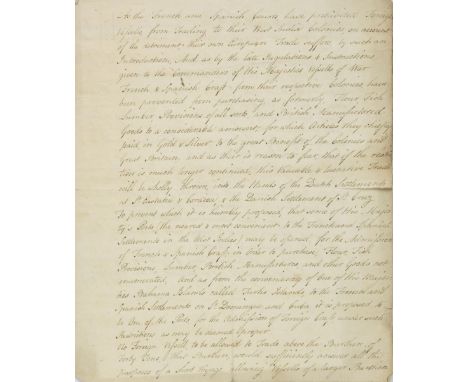 As the French and Spanish Courts have prohibited Foreign
Vessels from Trading to their West India Colonies on account
of the detriment their own European Trade suffers by such an
Introduction, And as by the late Regulations & Instructions
given to the Commanders of His Majesties Vessells of War
French & Spanish Craft from their respective Colonies have
been prevented from purchasing as formerly, Flour, Fish
Lumber, Provisions of all sorts, and British Manufactured
Goods to a considerable amount, for which Articles they chiefly
paid in Gold & Silver to the great Benefit of the Colonies and
Great Britain, and as their is reason to fear, that if the restric
tion is much longer continued, this Valuable & lucrative Trade
will be Solely thrown into the Hands of the Dutch Settlements
at St. Eustatia & Coracoa, & the Danish Settlement of St. Cruz
To prevent which it is humbly proposed, that some of His Majes
ty's Ports (the nearest & most convenient to the French and Spanish
Settlements in the West Indies) may be opened, for the Admission
of French & Spanish Craft, in order to purchase, Flour, Fish
Provisions, Lumber, British Manufactures and other Goods not
enumerated, And as from the contiguity of One of His Majes
ties Bahama Islands called Turks Islands, to the French and
Spanish Settlements on St. Domingue and Cuba, it is proposed
to be One of the Ports, for the Admission of Foreign Craft under such
Restrictions as may be deemed proper.
No Foreign Vessell to be allowed to Trade above the Burthen of
Forty Tons, (that Burthen would sufficiently answer all the
purposes of a short Voyage, allowing Vessells of a larger Burthen